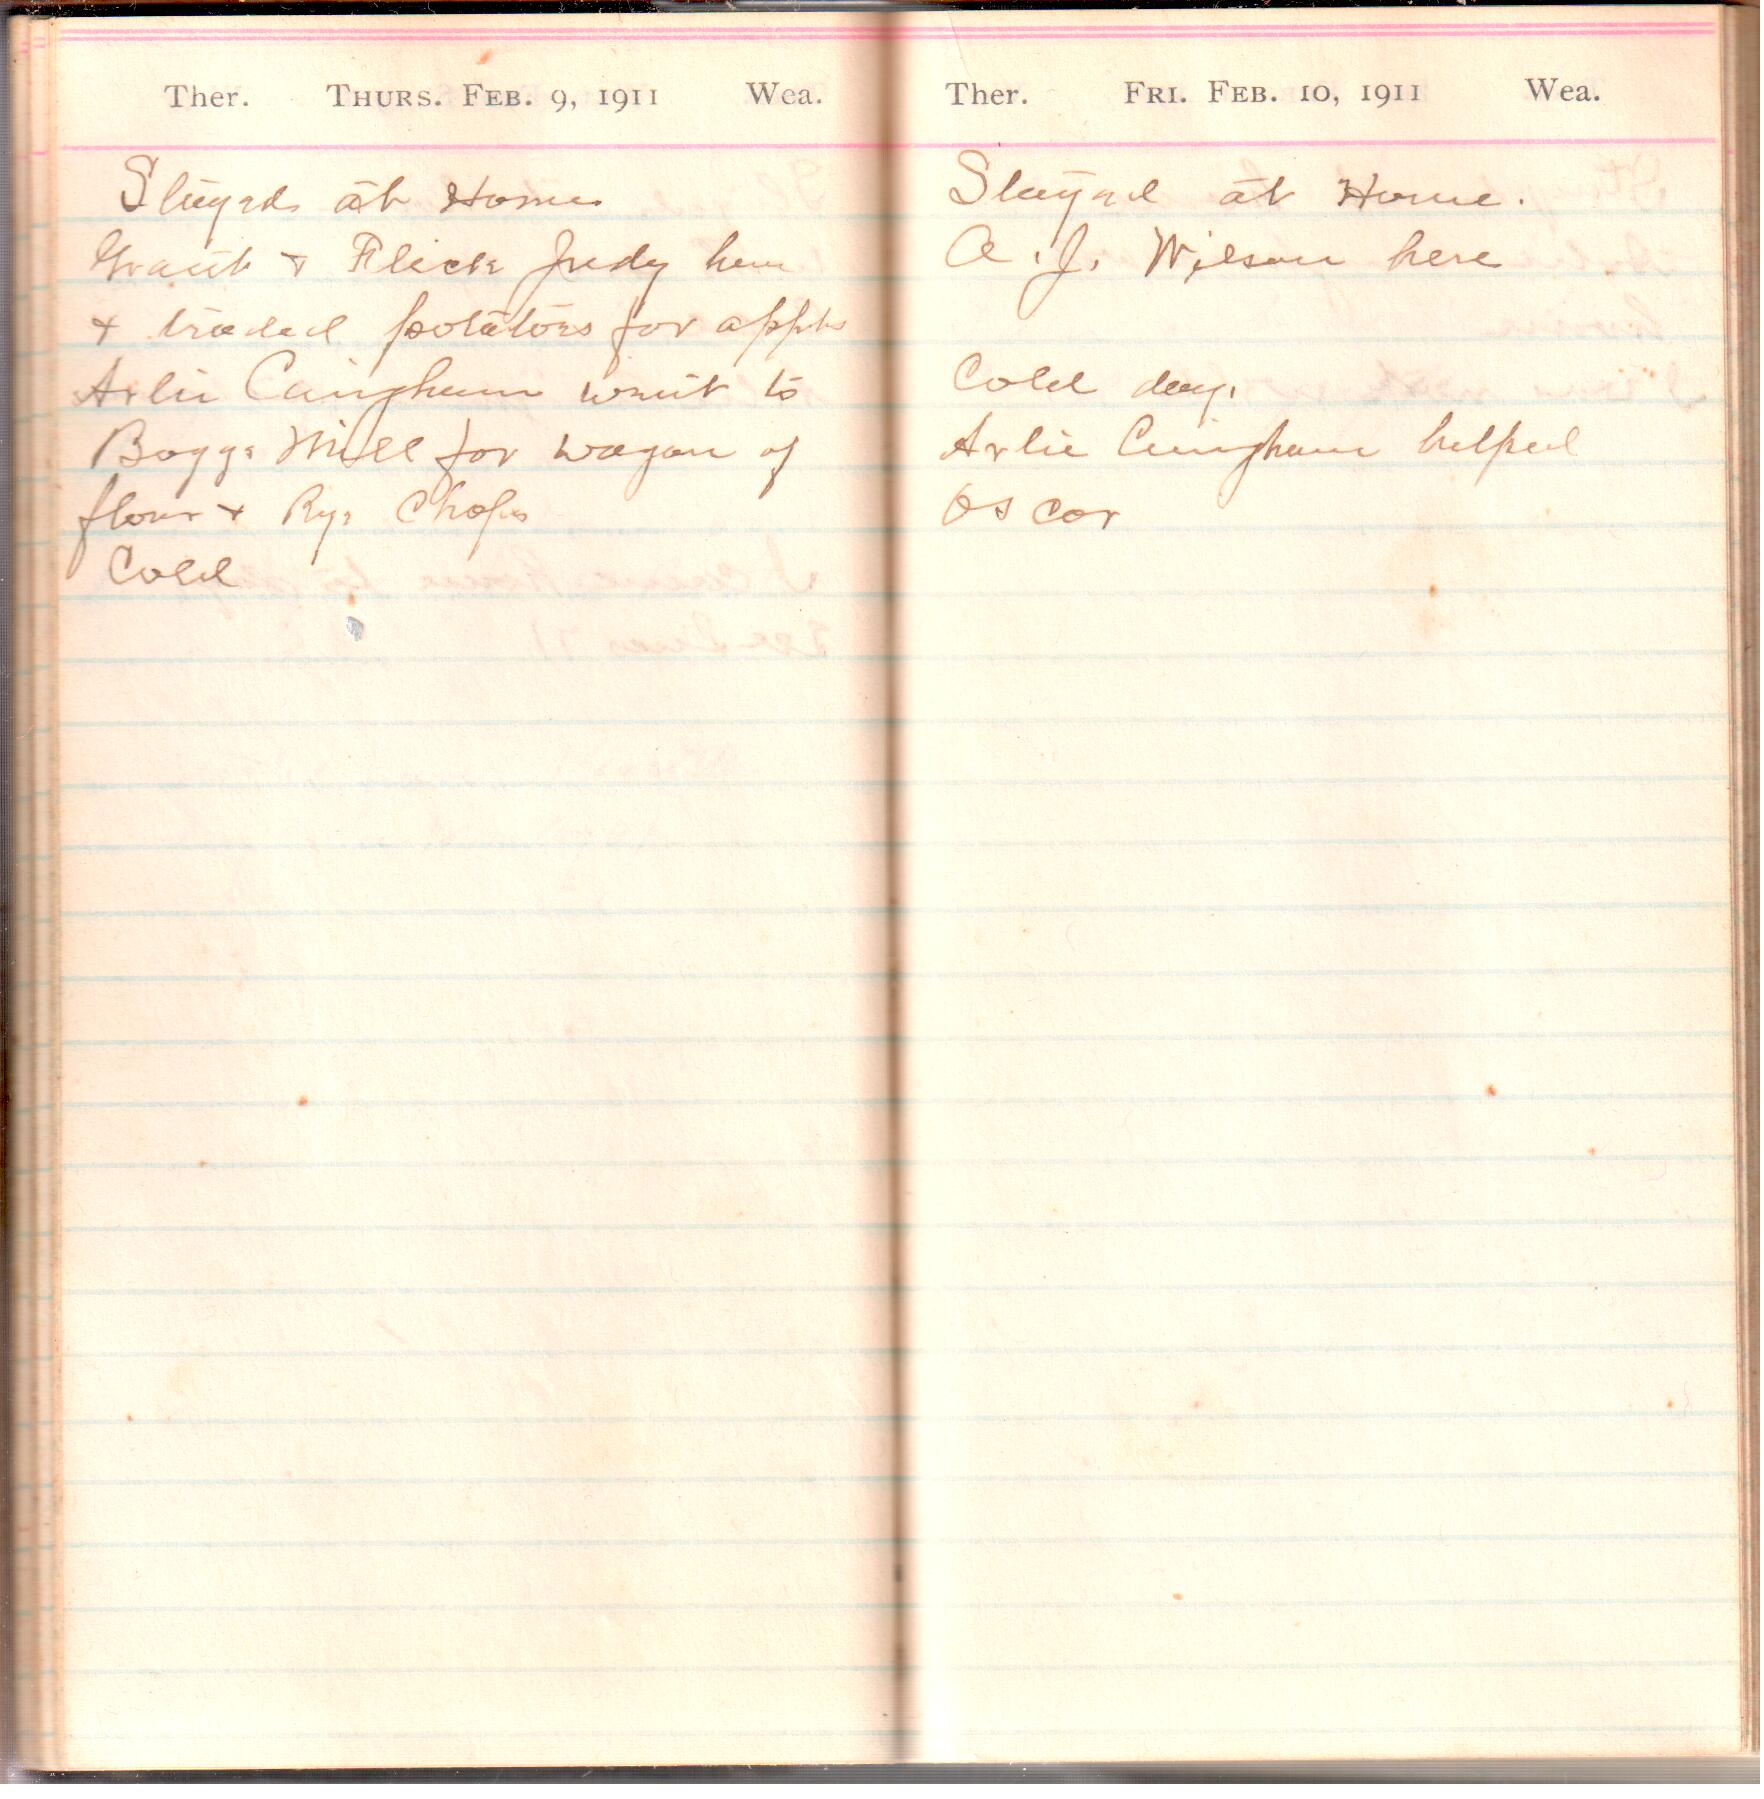 Ther. THURS. FEB. 9, 1911 Wea.
Stayed at Home
Grant & Flick Judy here
& traded potatoes for apples
Arlie Cuingham went to
Boggs Mill for wagon of
flour & Rye Chops
Cold
Ther. FRI. FEB. 10, 1911 Wea.
Stayed at Home.
A. J. Wilson here
Cold day.
Arlie Cuingham helped
Oscar